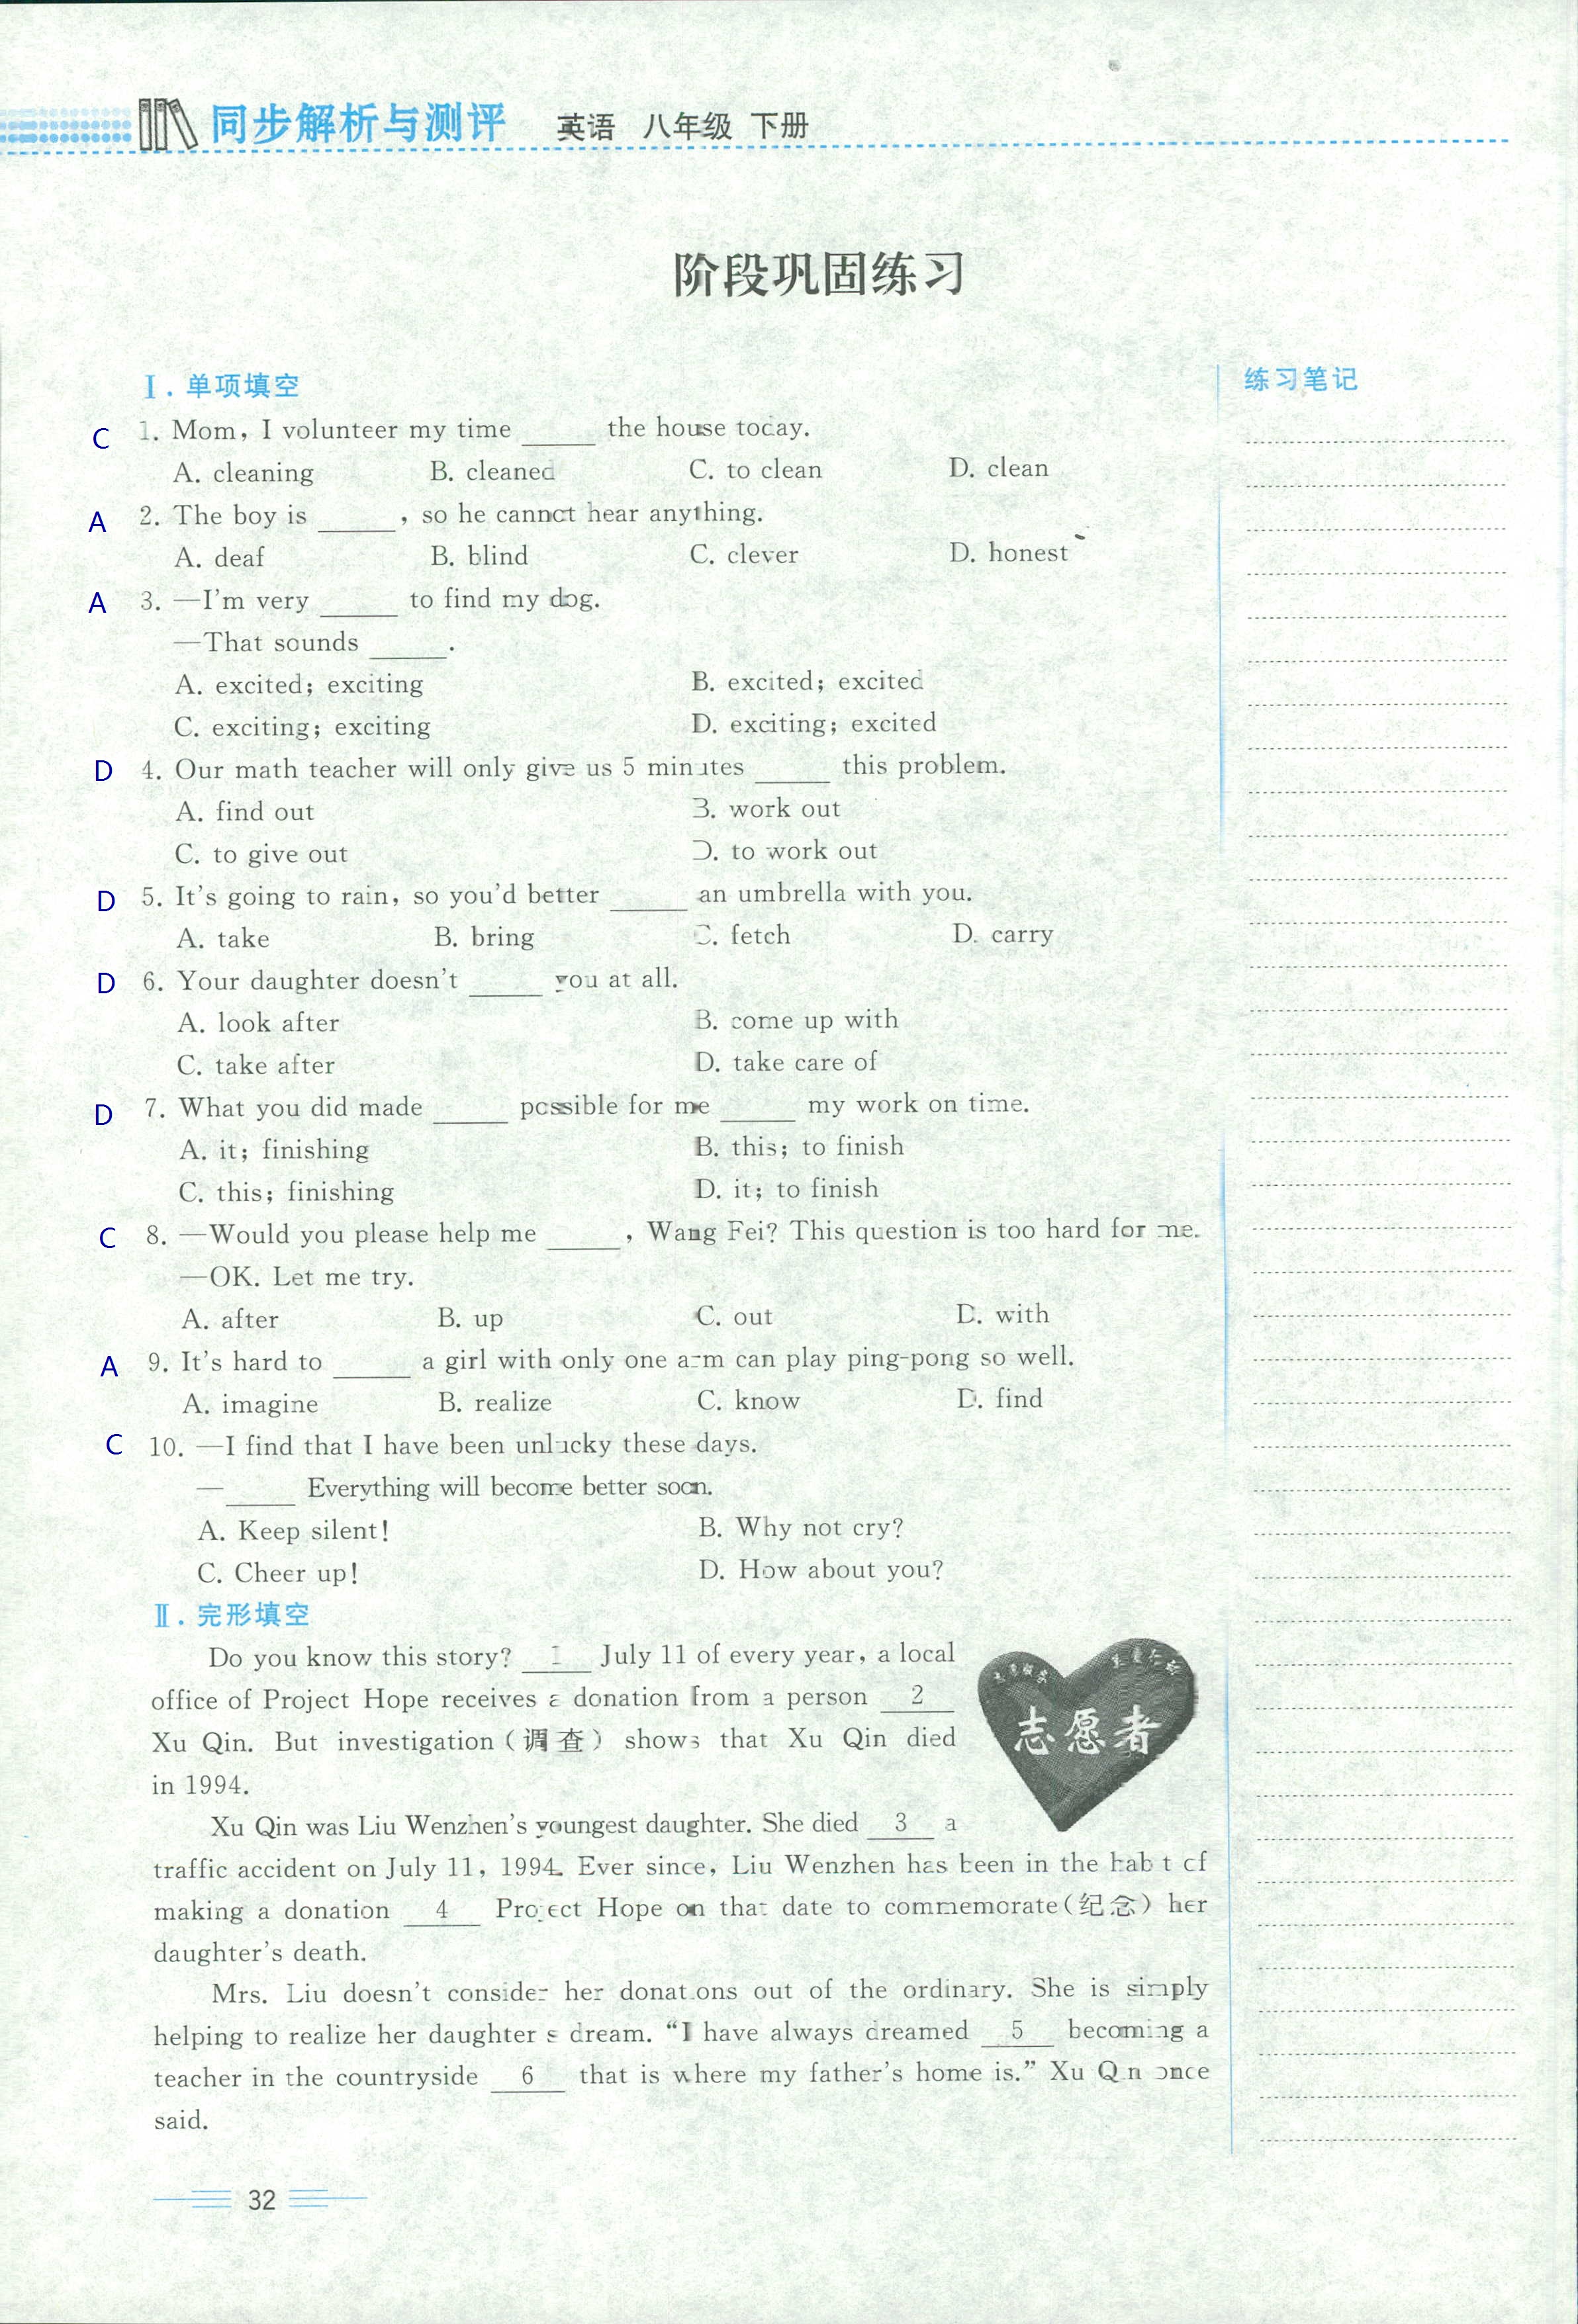 同步解析与测评 英语 八年级 下册
阶段巩固练习
Ⅰ. 单项填空
练习笔记
C 1. Mom, I volunteer my time _____ the house today.
A. cleaning B. cleaned C. to clean D. clean
A 2. The boy is _____, so he cannot hear anything.
A. deaf B. blind C. clever D. honest
A 3. —I'm very _____ to find my dog.
—That sounds _____.
A. excited; exciting B. excited; excited
C. exciting; exciting D. exciting; excited
D 4. Our math teacher will only give us 5 minutes _____ this problem.
A. find out B. work out
C. to give out D. to work out
D 5. It's going to rain, so you'd better _____ an umbrella with you.
A. take B. bring C. fetch D. carry
D 6. Your daughter doesn't _____ you at all.
A. look after B. come up with
C. take after D. take care of
D 7. What you did made _____ possible for me _____ my work on time.
A. it; finishing B. this; to finish
C. this; finishing D. it; to finish
C 8. —Would you please help me _____, Wang Fei? This question is too hard for me.
—OK. Let me try.
A. after B. up C. out D. with
A 9. It's hard to _____ a girl with only one arm can play ping-pong so well.
A. imagine B. realize C. know D. find
C 10. —I find that I have been unlucky these days.
—_____ Everything will become better soon.
A. Keep silent! B. Why not cry?
C. Cheer up! D. How about you?
Ⅱ. 完形填空
Do you know this story? 1 July 11 of every year, a local
office of Project Hope receives a donation from a person 2
Xu Qin. But investigation(调查) shows that Xu Qin died
in 1994.
志愿者
Xu Qin was Liu Wenzhen's youngest daughter. She died 3 a
traffic accident on July 11, 1994. Ever since, Liu Wenzhen has been in the habit of
making a donation 4 Project Hope on that date to commemorate(纪念) her
daughter's death.
Mrs. Liu doesn't consider her donations out of the ordinary. She is simply
helping to realize her daughter's dream. “I have always dreamed 5 becoming a
teacher in the countryside 6 that is where my father's home is.” Xu Qin once
said.
32